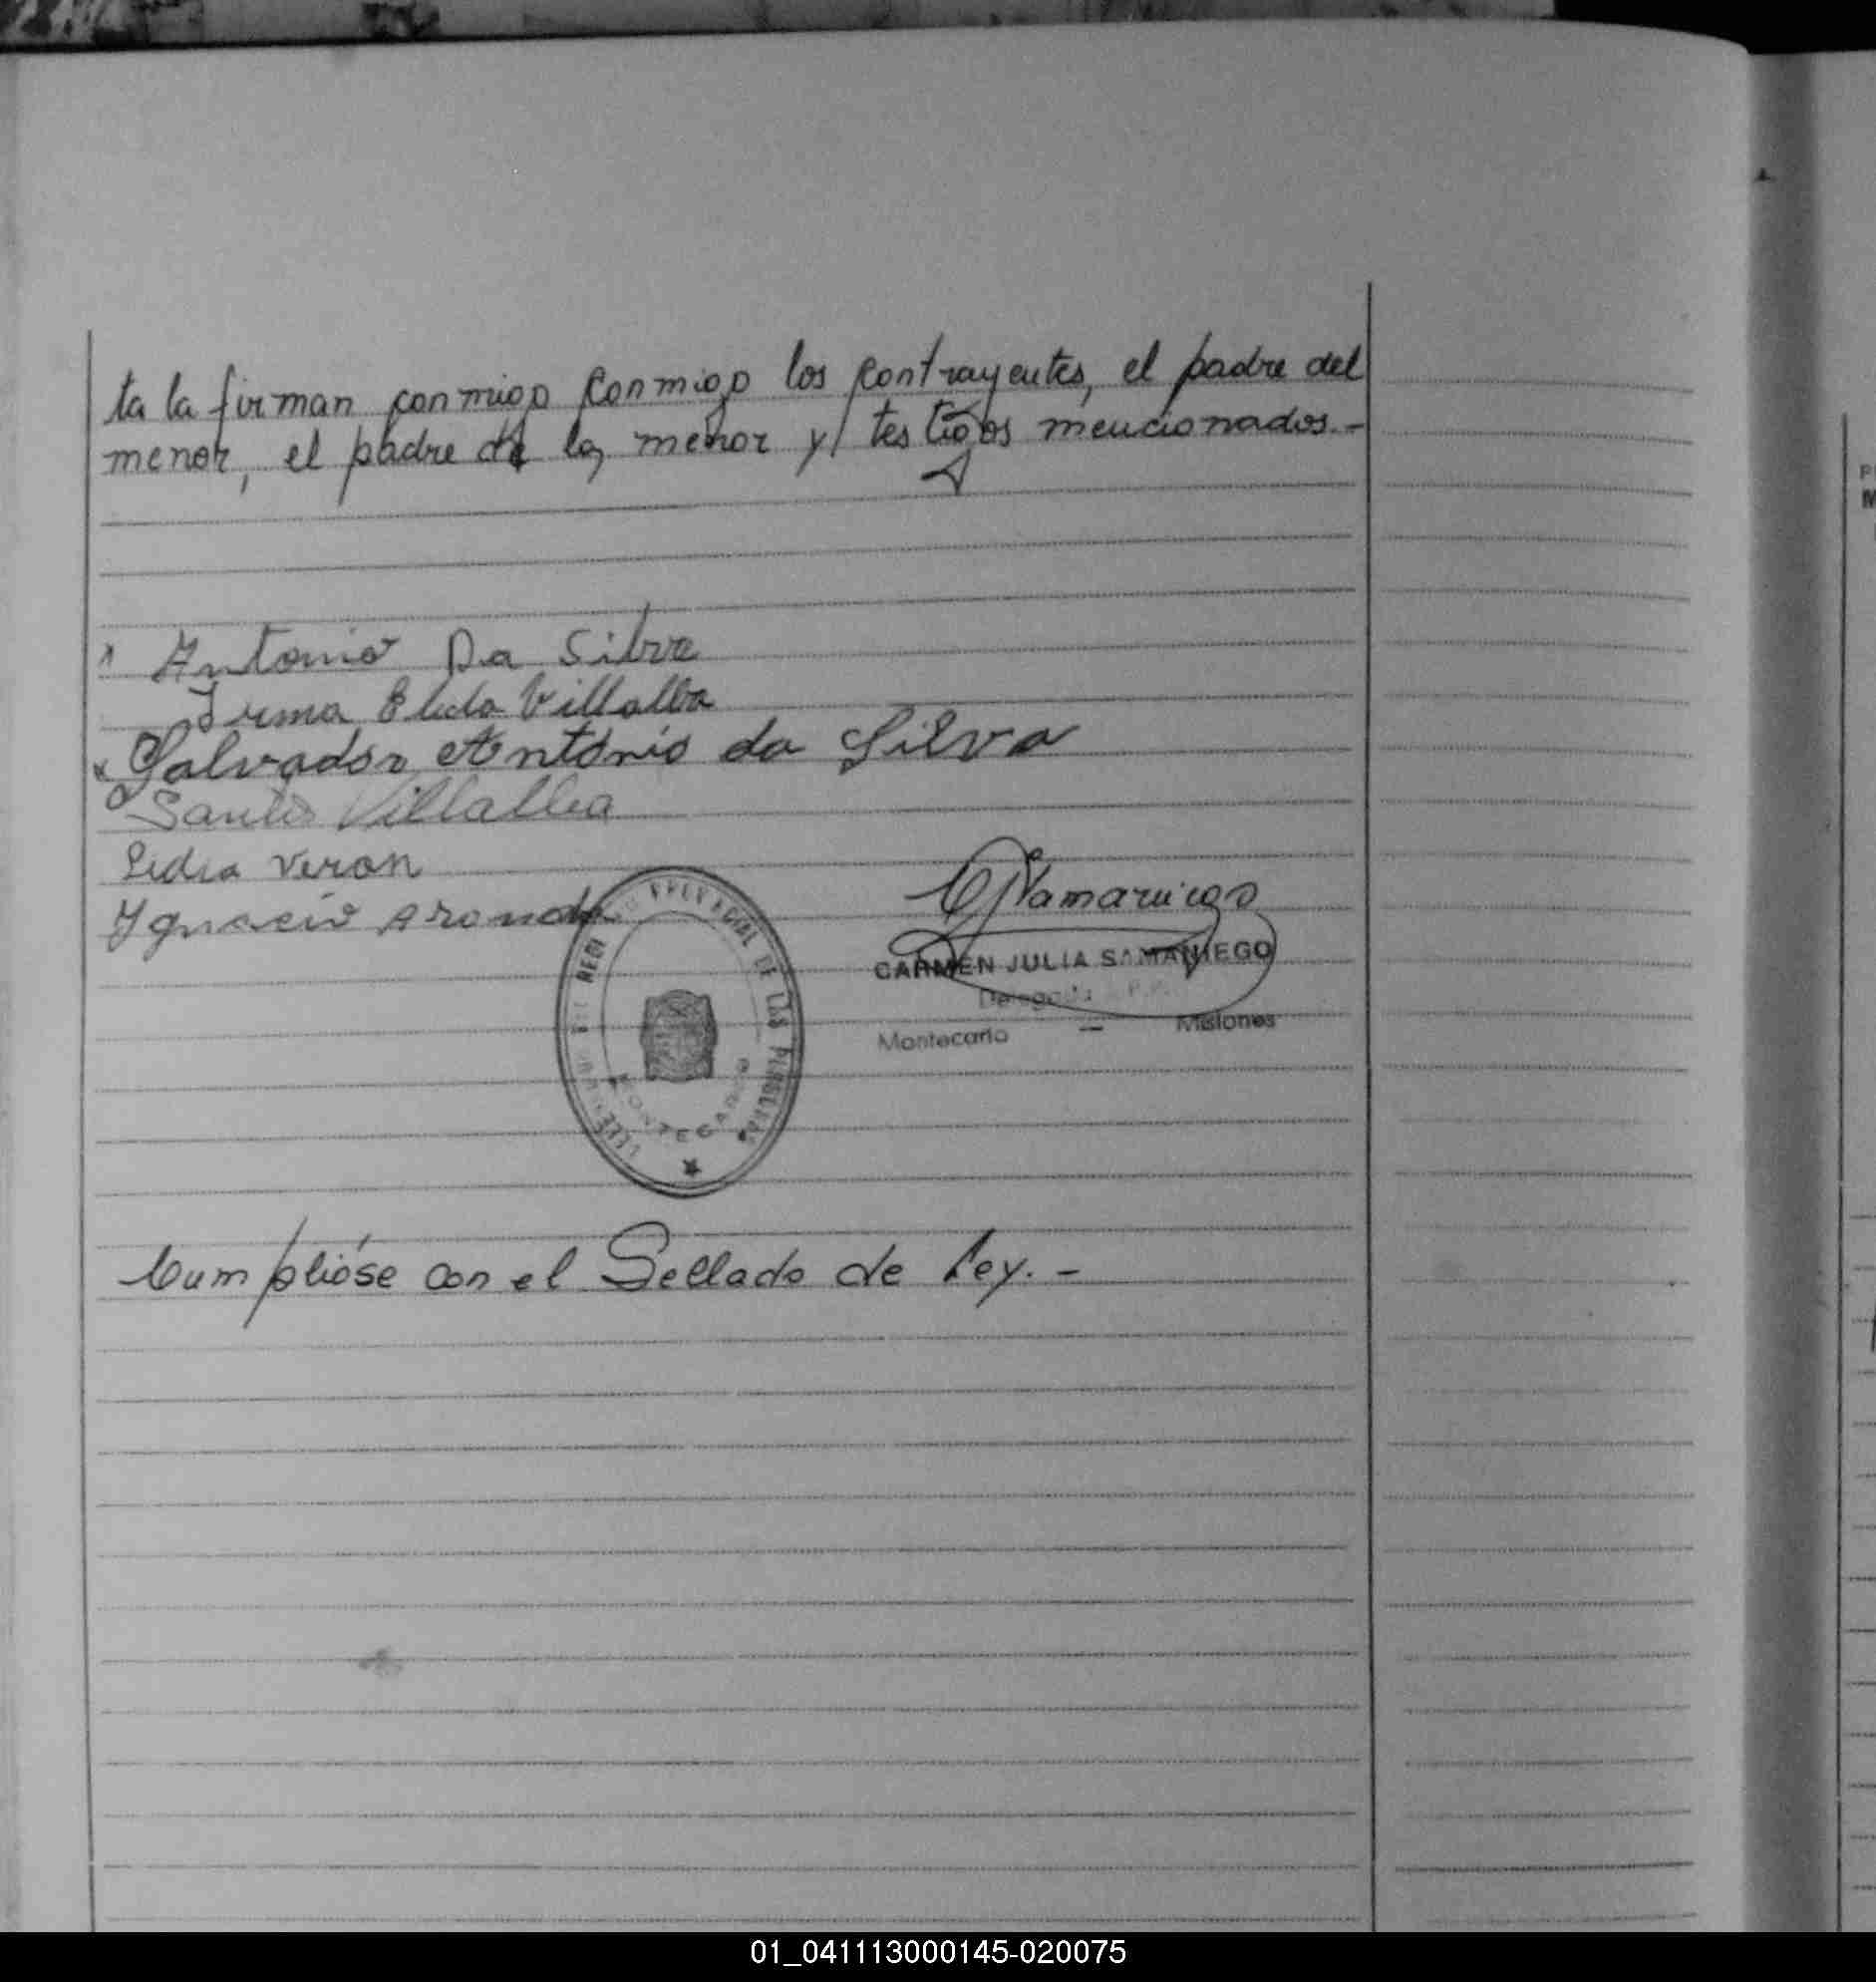 ta la firman conmigo conmigo los contrayentes, el padre del
menor, el padre de la menor y testigos mencionados.-
Antonio Da Silva
Irma Elida Villalba
Salvador Antonio da Silva
Santos Villalba
Lidia Veron
Ygnacio Aranda
CJSamaniego
CARMEN JULIA SAMANIEGO
Delegada
Montecarlo — Misiones
PROVINCIAL DE LAS PERSONAS
MONTECARLO
Cumplióse con el Sellado de Ley.-
01_041113000145-020075